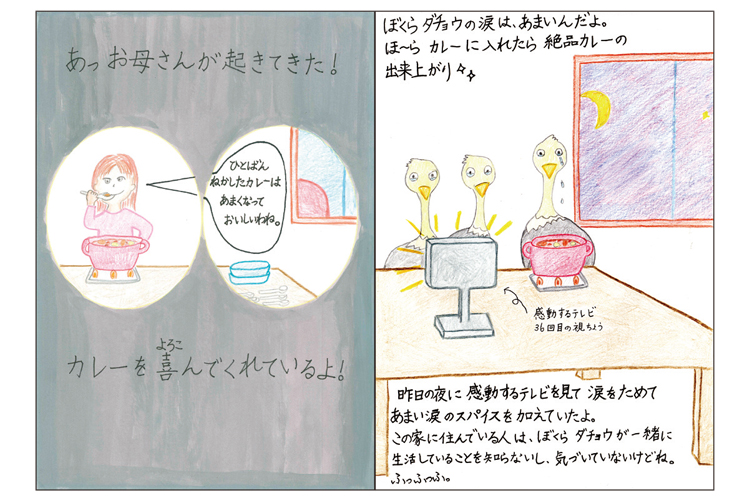 あっお母さんが起きてきた!
ひとばん
ねかしたカレーは
あまくなって
おいしいわね。
よろこ
カレーを喜んでくれているよ!
ぼくらダチョウの涙は、あまいんだよ。
ほ〜らカレーに入れたら絶品カレーの
出来上がり
感動するテレビ
36回目の視ちょう
昨日の夜に感動するテレビを見て涙をためて
あまい涙のスパイスを加えていたよ。
この家に住んでいる人は、ぼくらダチョウが一緒に
生活していることを知らないし、気づいていないけどね。
ふっふっふ。